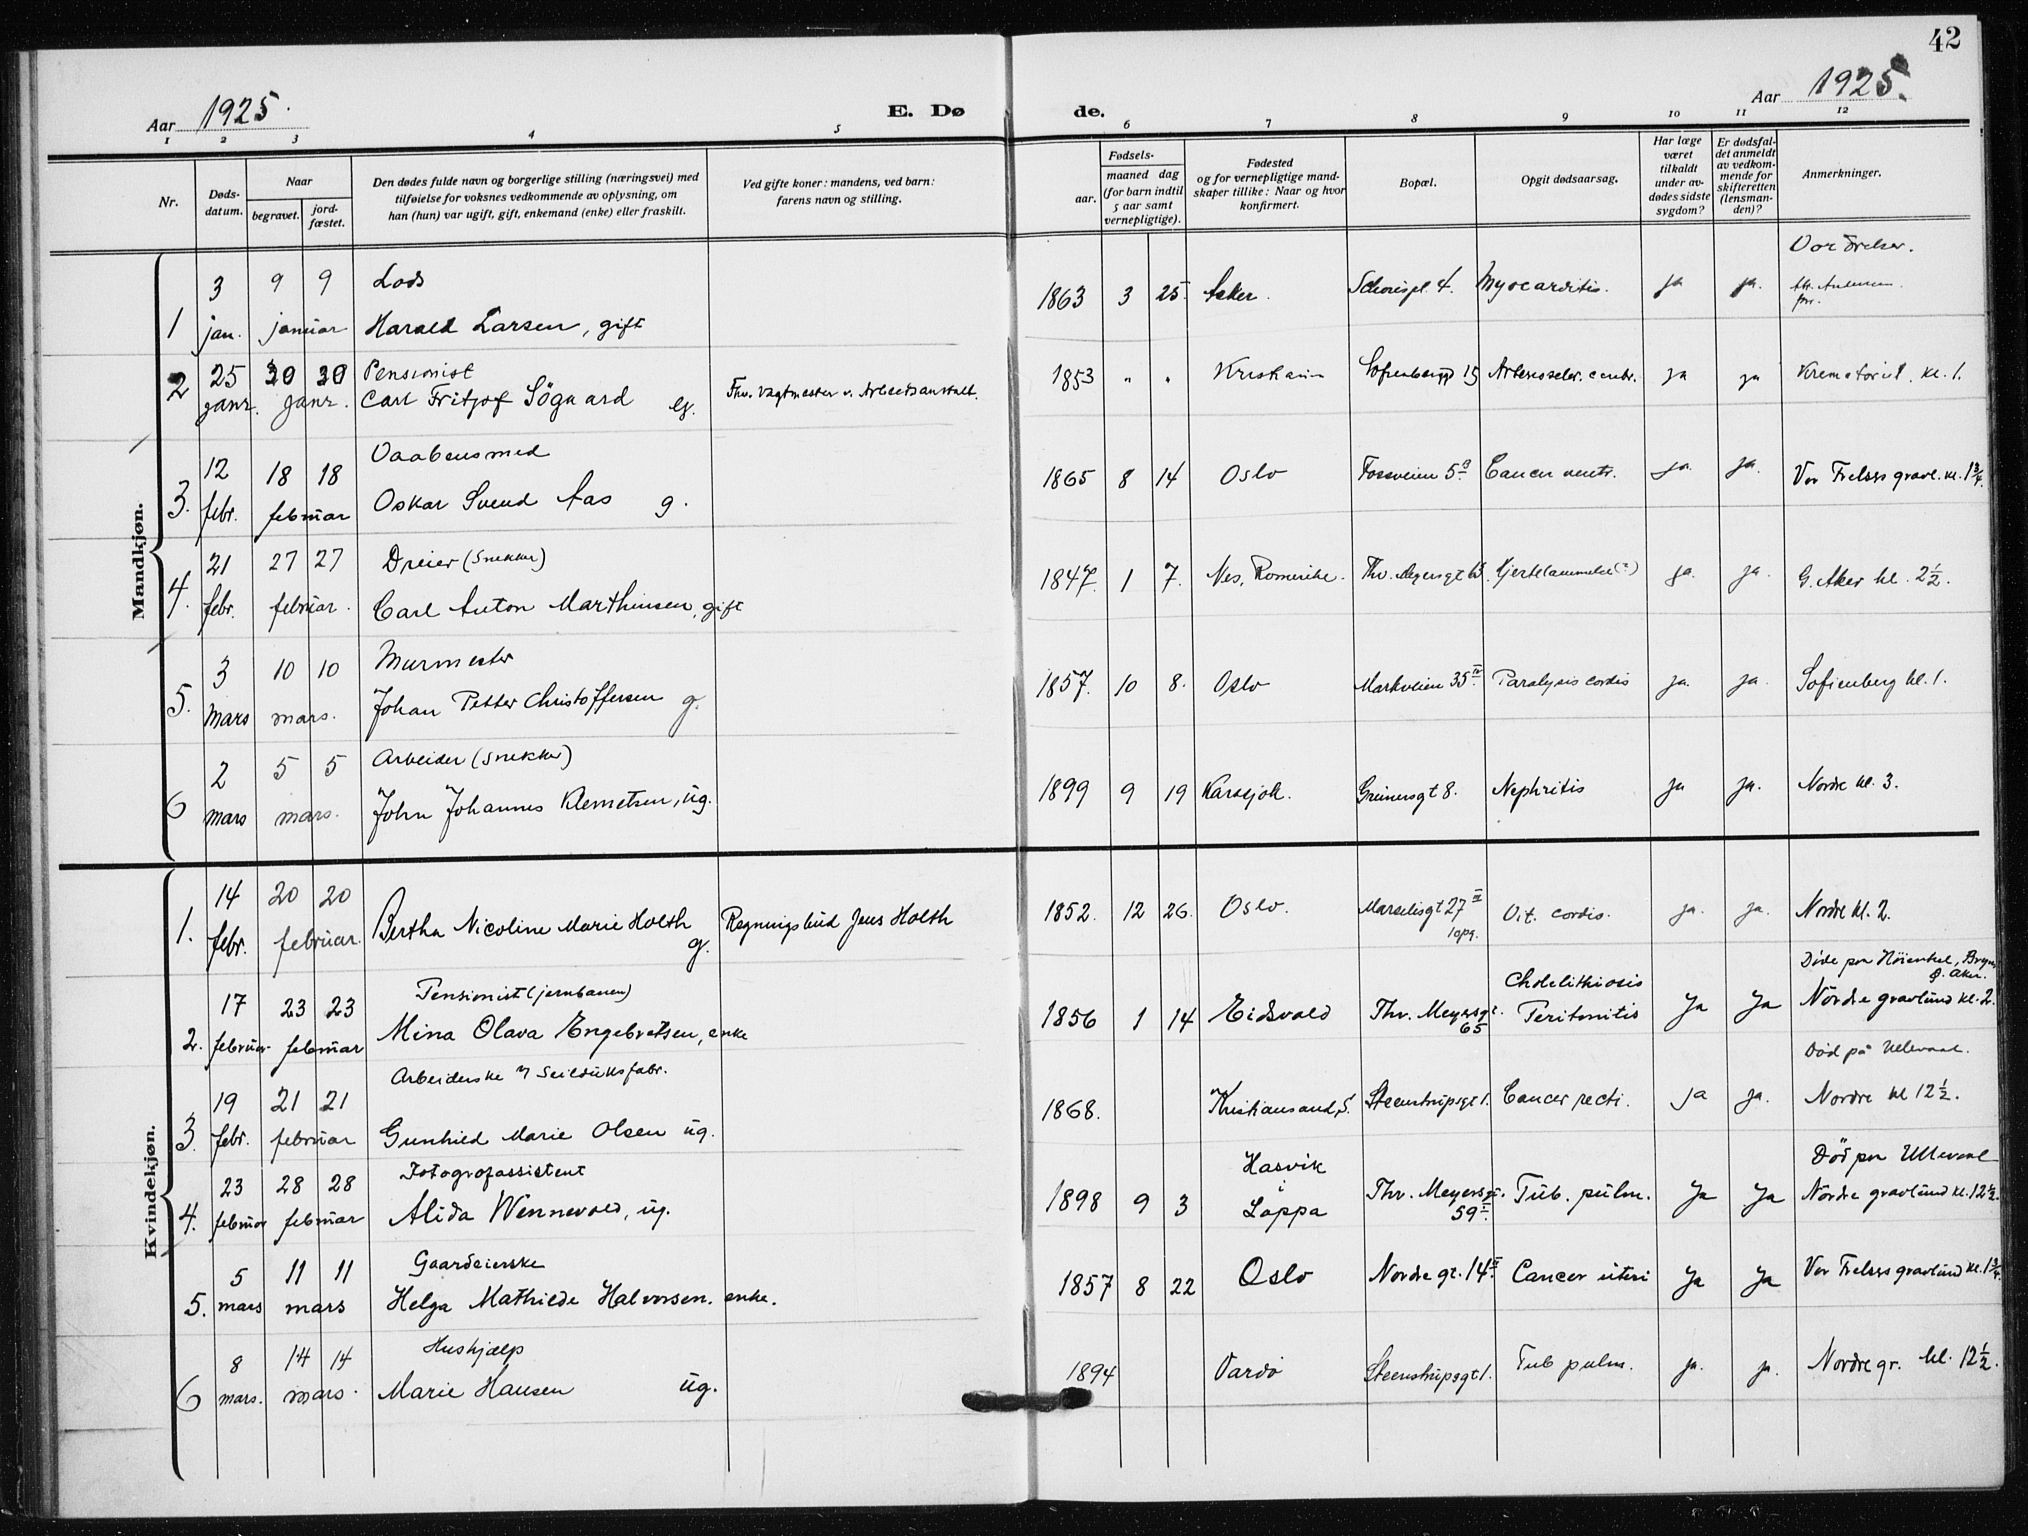 42
Aar 1925.
E. Dø
de.
Aar 1925.
1 2 3 4 5 6 7 8 9 10 11 12
Nr.
Døds-
datum.
Naar
begravet.
jord-
fæstet.
Den dødes fulde navn og borgerlige stilling (næringsvei) med
tilføielse for voksnes vedkommende av oplysning, om
han (hun) var ugift, gift, enkemand (enke) eller fraskilt.
Ved gifte koner: mandens, ved barn:
farens navn og stilling.
Fødsels-
aar.
maaned dag
(for barn indtil
5 aar samt
vernepligtige).
Fødested
og for vernepligtige mand-
skaper tillike: Naar og hvor
konfirmert.
Bopæl.
Opgit dødsaarsag.
Har læge
været
tilkaldt
under av-
dødes sidste
sygdom?
Er dødsfal-
det anmeldt
av vedkom-
mende for
skifteretten
(lensman-
den)?
Anmerkninger.
Mandkjøn.
Vor Frelser.
3 9 9 Lods 1863 3 25. Asker. 4. Myocarditis. ja ja.
1 jan. januar Harald Larsen, gift
25 30 30 Pensionist 1853 " " Sofienberggt 15 ja ja Krematoriet. kl. 1.
2 janr. janr. Carl Fritjof Sögaard Fhv. vagtmester v. Arbeidsanstalt.
12 18 18 Vaabensmed 1865 8 14 Oslo Fossveien 5 Cancer ventr. ja ja. Vor Frelsers gravl. kl. 1 3/4.
3. febr. februar Oskar Svend Aas g.
21 27 27 Dreier (snekker) 1847. 1 7. Nes, Romerike. Thv. Meyersgt ja. ja. G. Aker kl. 2 1/2.
4. febr. februar. Carl Anton Marthinsen, gift
3 10 10 Murmester 1857. 10 8. Oslo Markveien 35 IV Paralysis cordis ja. ja. Sofienberg kl. 1.
5. mars mars. Johan Petter Christoffersen g.
2 5 5 Arbeider (snekker) 1899 9 19 Karasjok. Grünersgt 8. Nephritis ja ja. Nordre kl. 3.
6 mars mars. John Johannes Klemetsen, ug.
Kvindekjøn.
14 20 20 1852. 12 26. Oslo. Marselisgt 27 II Vit. cordis. ja. ja. Nordre kl. 2.
1. febr. februar. Bertha Nicoline Marie Holth Regningsbud Jens Holth opg.
g.
Pensionist (jernbanen) Cholelithiosis Døde paa Høienhal, Bryn,
Ø. Aker.
17 23 23 1856 1 14 Eidsvold Thv. Meyersgt. Peritonitis Ja Ja Nordre gravlund kl. 2.
65
2. februar februar Mina Olava Engebretsen, enke
Arbeiderske v/ Seilduksfabr. Død på Ullevaal.
19 21 21 1868. Kristiansand, S. Steenstrupsgt 1. Cancer recti. ja ja. Nordre kl 12 1/2.
3. febr. februar Gunhild Marie Olsen ug.
Fotografassistent Hasvik Død paa Ullevaal
23 28 28 1898 9 3 i Thv. Meyersgt. Tub. pulm. Ja Ja Nordre gravlund kl. 12 1/2.
4. februar februar Alida Wennevold, ug. Loppa 59 I.
Gaardeierske
5 11 11 1857 8 22 Oslo Nordre gt. 14 II. Cancer uteri Ja Ja Vor Frelsers gravlund kl. 1 3/4.
5. mars mars Helga Mathilde Halvorsen. enke.
Hushjælp
8 14 14 1894 Vardø Steenstrupsgt 1. Tub pulm. ja. ja Nordre gr. kl. 12 1/2.
6 mars. mars. Marie Hansen ug.